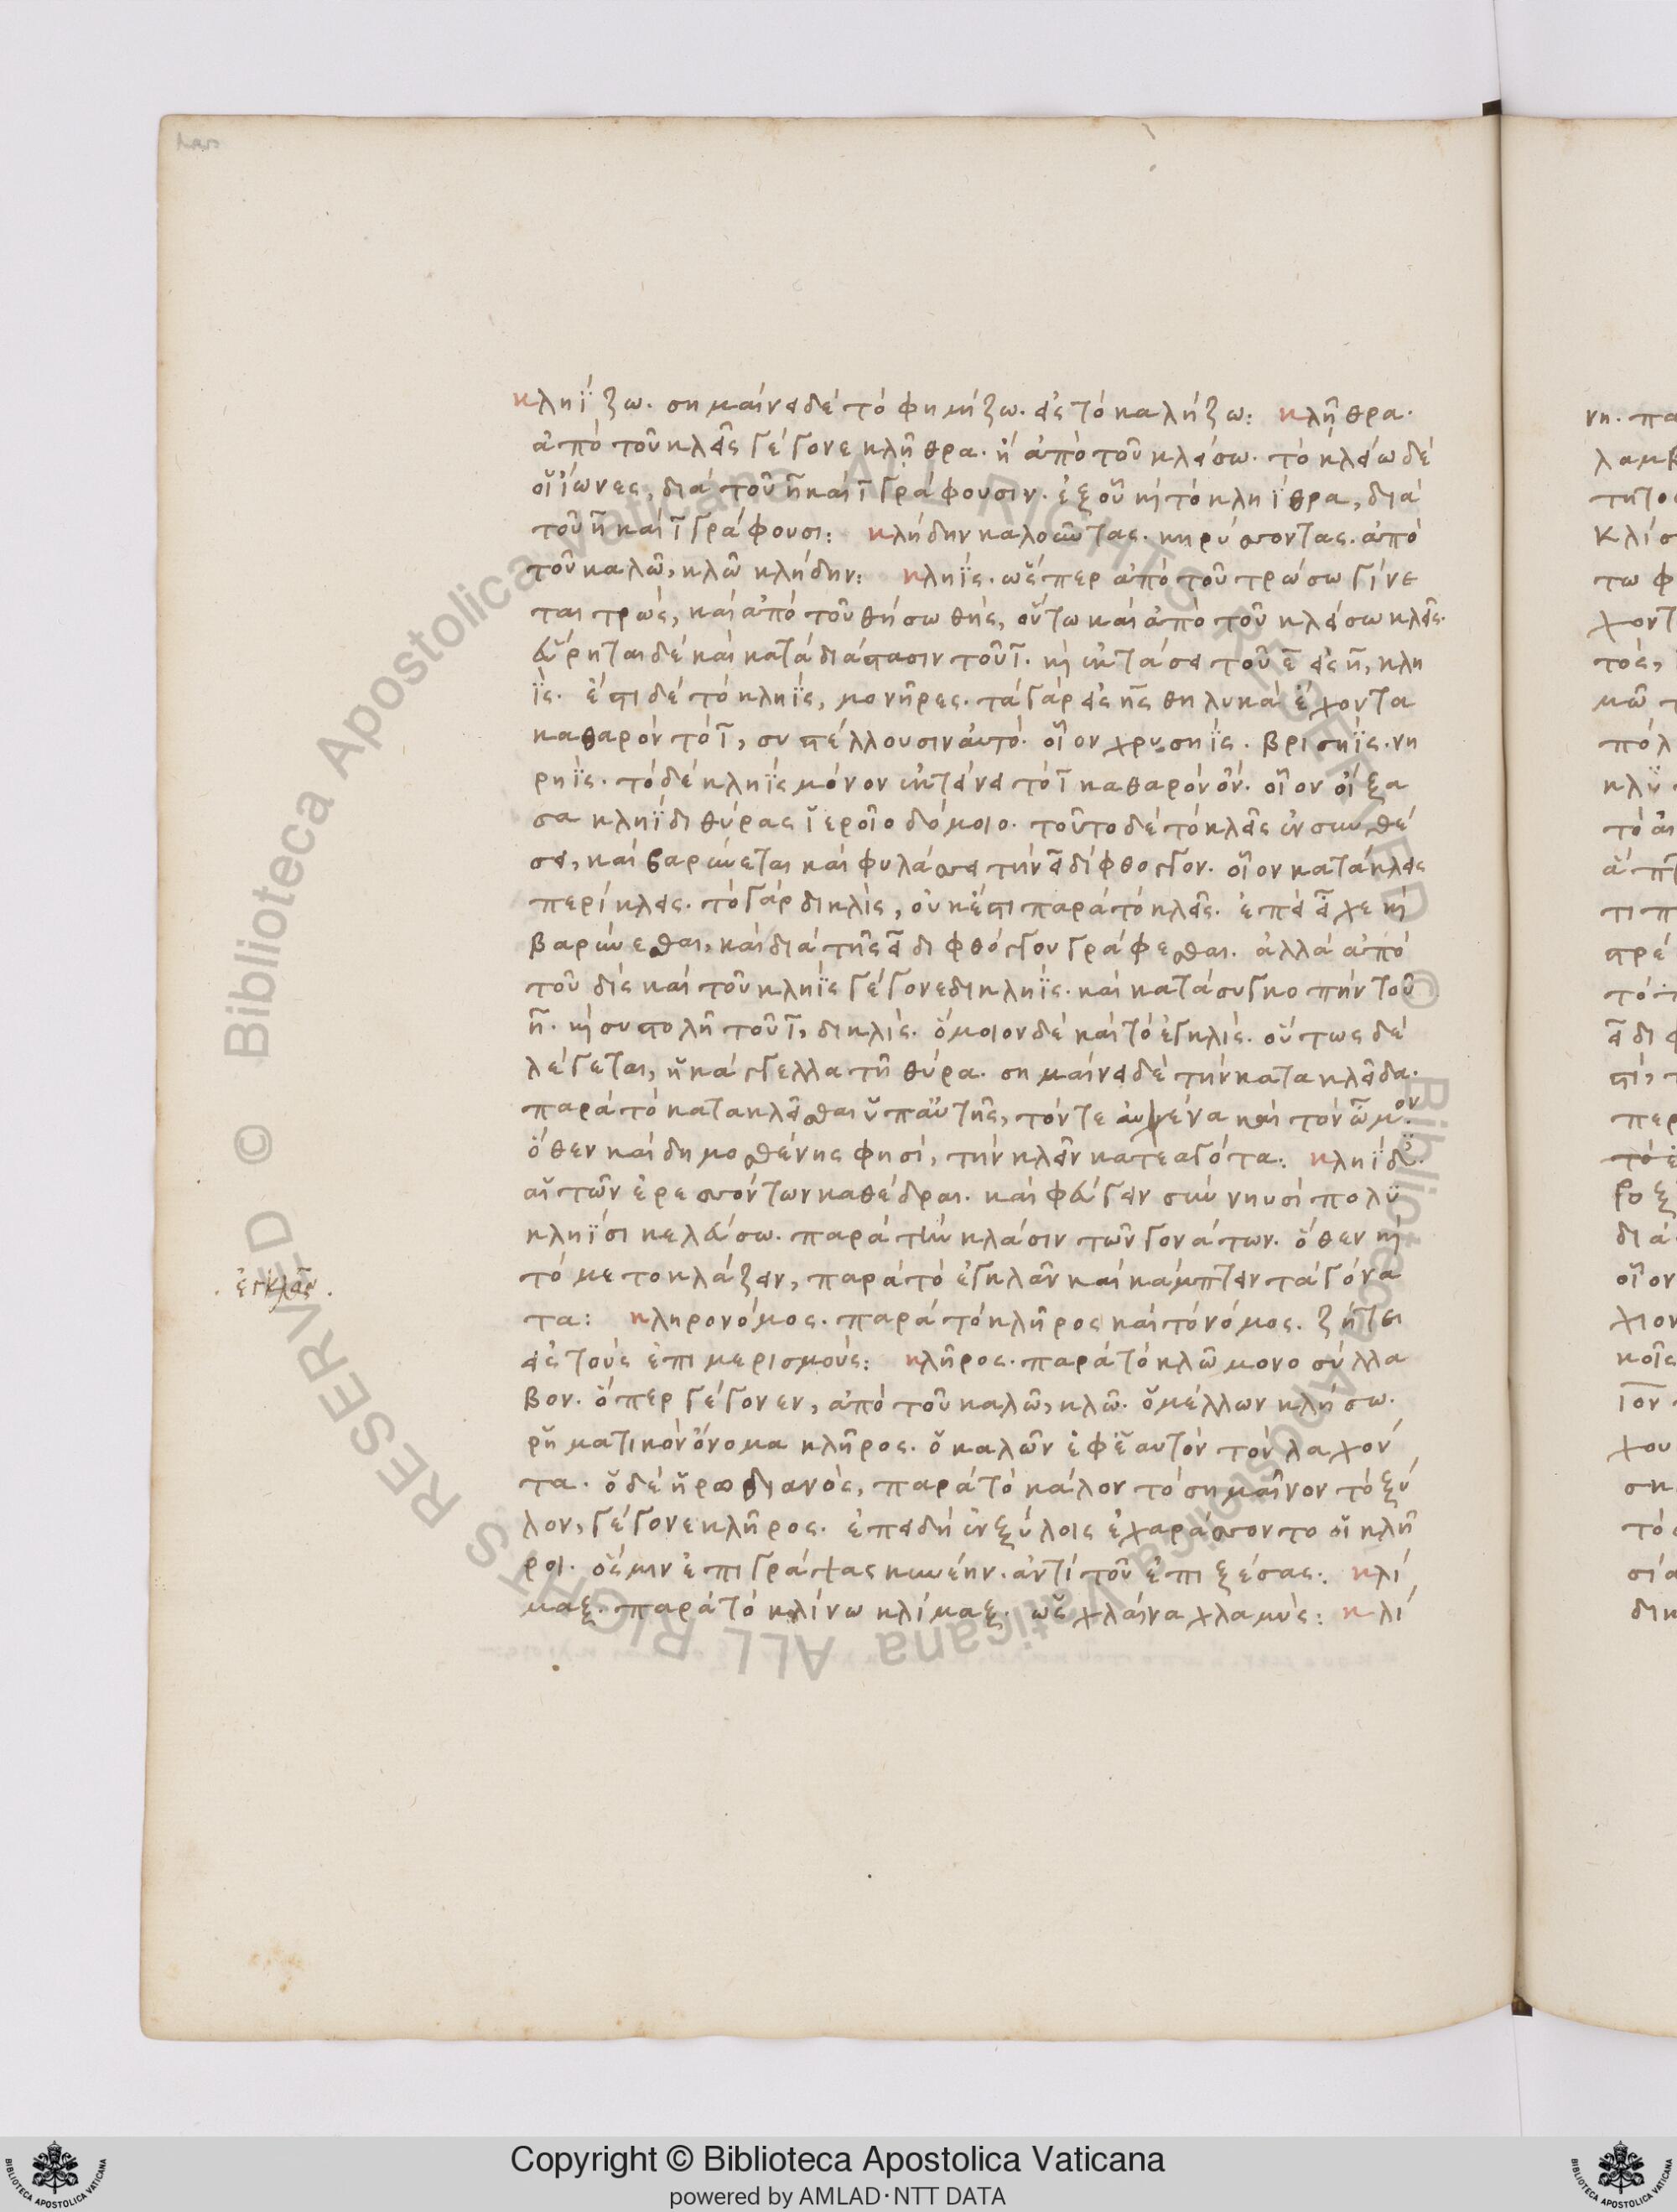 κληΐζω. σημαίνει δὲ τὸ φημίζω. εἰς τὸ καλήζω: κλῆθρα.
ἀπὸ τοῦ κλεῖς γέγονε κλῆθρα. ἢ ἀπὸ τοῦ κλείσω. τὸ κλείω δὲ
οἱ ἴωνες, διὰ τοῦ η καὶ ι γράφουσιν. ἐξ οὗ κὶ τὸ κληΐθρα, διὰ
τοῦ η καὶ ι γράφουσι: κλήδην καλοῦντας. κηρύσσοντας. ἀπὸ
τοῦ καλῶ, κλῶ κλήδην: κληΐς. ὥσπερ ἀπὸ τοῦ τρώσω γίνε
ται τρώς, καὶ ἀπὸ τοῦ θήσω θής, οὕτω καὶ ἀπὸ τοῦ κλείσω κλείς.
εὕρηται δὲ καὶ κατὰ διάστασιν τοῦ ι. κὶ ἐκτάσει τοῦ ε εἰς η, κλη
ΐς. ἔστι δὲ τὸ κληΐς, μονῆρες. τὰ γὰρ εἰς ης θηλυκὰ ἔχοντα
καθαρὸν τὸ ι, συστέλλουσιν αὐτό. οἷον χρυσηΐς. βρισηΐς. νη
ρηΐς. τὸ δὲ κληΐς μόνον ἐκτείνει τὸ ι καθαρὸν ὄν. οἷον οἴξα
σα κληΐδι θύρας ἱεροῖο δόμοιο. τοῦτο δὲ τὸ κλεῖς ἐν συνθέ
σει, καὶ βαρύνεται καὶ φυλάσσει τὴν ει δίφθογγον. οἷον κατάκλεις
περίκλεις. τὸ γὰρ δικλὶς, οὐκ ἔστι παρὰ τὸ κλεῖς. ἐπεὶ εἶχε κὶ
βαρύνεσθαι, καὶ διὰ τῆς ει διφθόγγου γράφεσθαι. ἀλλὰ ἀπὸ
τοῦ δὶς καὶ τοῦ κληΐς γέγονε δικληΐς. καὶ κατὰ συγκοπὴν τοῦ
η. κὶ συστολῆ τοῦ ι, δικλίς. ὅμοιον δὲ καὶ τὸ ἐγκλίς. οὕτως δὲ
λέγεται, ἡ κάγγελλα τῆ θύρα. σημαίνει δὲ τὴν κατακλεῖδα.
παρὰ τὸ κατακλεῖσθαι ὑπ' αὐτῆς, τόν τε αὐχένα καὶ τὸν ὦμον.
ὅθεν καὶ δημοσθένης φησί, τὴν κλεῖν κατεαγότα: κληΐδες.
αἱ τῶν ἐρεσσόντων καθέδραι. καὶ φεύγειν σὺν νηυσὶ πολυ
κληΐσι κελεύσω. παρὰ τὴν κλάσιν τῶν γονάτων. ὅθεν κὶ
τὸ μετοκλάζειν, παρὰ τὸ ἐγκλᾶν καὶ κάμπτειν τὰ γόνα
ἐγκλᾶν.
τα: κληρονόμος. παρὰ τὸ κλῆρος καὶ τὸ νόμος. ζήτει
εἰς τοὺς ἐπιμερισμούς: κλῆρος. παρὰ τὸ κλῶ μονοσύλλα
βον. ὅπερ γέγονεν, ἀπὸ τοῦ καλῶ, κλῶ. ὁ μέλλων κλήσω.
ῥηματικὸν ὄνομα κλῆρος. ὁ καλῶν ἐφ' ἑαυτὸν τὸν λαχόν
τα. ὁ δὲ ἡρωδιανὸς, παρὰ τὸ κάλον τὸ σημαῖνον τὸ ξύ
λον, γέγονε κλῆρος. ἐπειδὴ ἐν ξύλοις ἐχαράσσοντο οἱ κλῆ
ροι. ὅς μιν ἐπιγράψας κυνέην. ἀντὶ τοῦ ἐπιξέσας: κλί
μαξ. παρὰ τὸ κλίνω κλίμαξ. ὡς χλαίνα χλαμύς: κλί
Copyright © Biblioteca Apostolica Vaticana
powered by AMLAD·NTT DATA